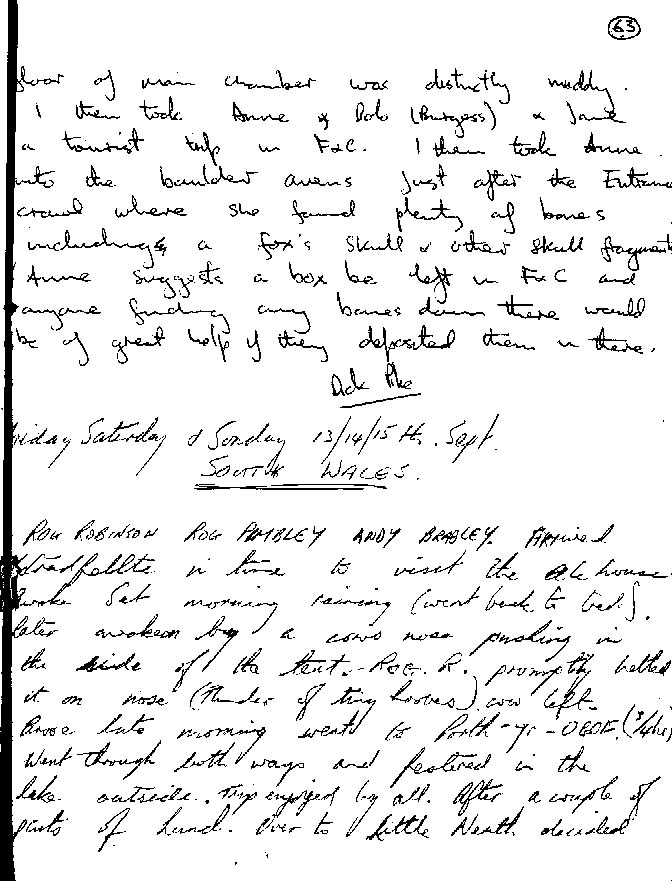 63
floor of main chamber was distinctly muddy.
I then took Anne & Bob (Burgess) & Jane
a tourist trip in F&C. I then took Anne
into the boulder avens just after the Entrance
crawl where she found plenty of bones
including a fox's skull & other skull fragments
Anne suggests a box be left in F&C and
anyone finding any bones down there would
be of great help if they deposited them in there.
Dick Pike
riday Saturday & Sunday 13/14/15 th. Sept.
SOUTH WALES.
ROG ROBINSON ROG ANDY BRADLEY. Arrived
stradfellte in time to visit the ale house
Awoke Sat morning raining (went back to bed).
later awoken by a cows nose pushing in
the side of the tent. - ROG. R. promptly belted
it on nose (thunder of tiny hooves) cow left.
Arose late morning went to Porth-yr-OGOF. (3/4hr)
Went through both ways and festered in the
lake outside. Trip enjoyed by all. After a couple of
parts of lunch. Over to Little Neath decided